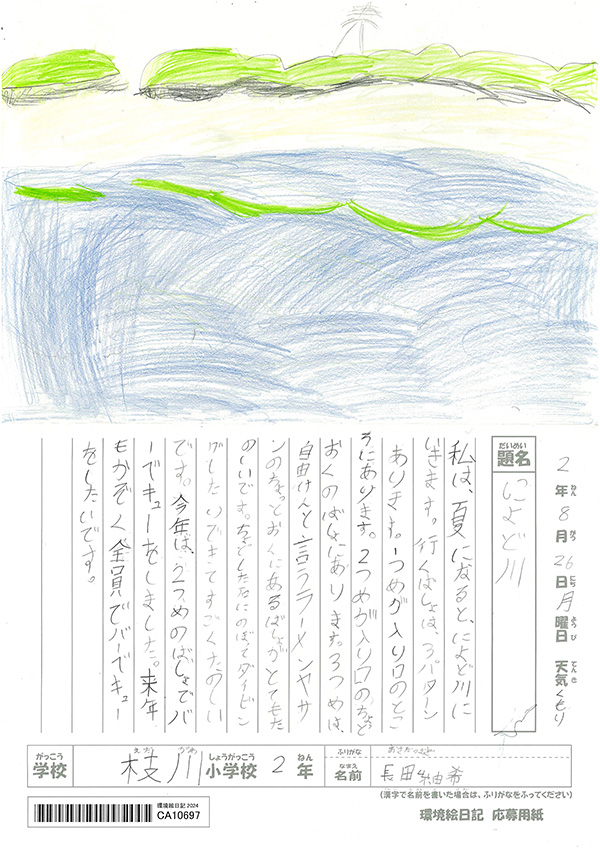 2年8月26日月曜日 天気くもり
ねん がつ にち ようび てんき
だいめい
題名 によど川
私は、夏になると、によど川に
いきます。行くばしょは、3パターン
あります。1つめが入り口のとこ
ろにあります。2つめが入り口のちょっと
おくのばしょにあります。3つめは、
自由けんと言うラーメンヤサ
ンのちょっとおくにあるばしょがとてもた
のしいです。 にのぼってダイビン
グしたい できてすごくたのしい
です。今年は、2つめのばしょでバ
ーでキューをしました。来年
もかぞく全員でバーでキュー
をしたいです。
がっこう えだ がわ しょうがっこう ねん ふりがな
学校 枝川小学校 2年
なまえ
名前 長田紬希
(漢字で名前を書いた場合は、ふりがなをふってください)
環境絵日記 2024
CA10697
環境絵日記 応募用紙